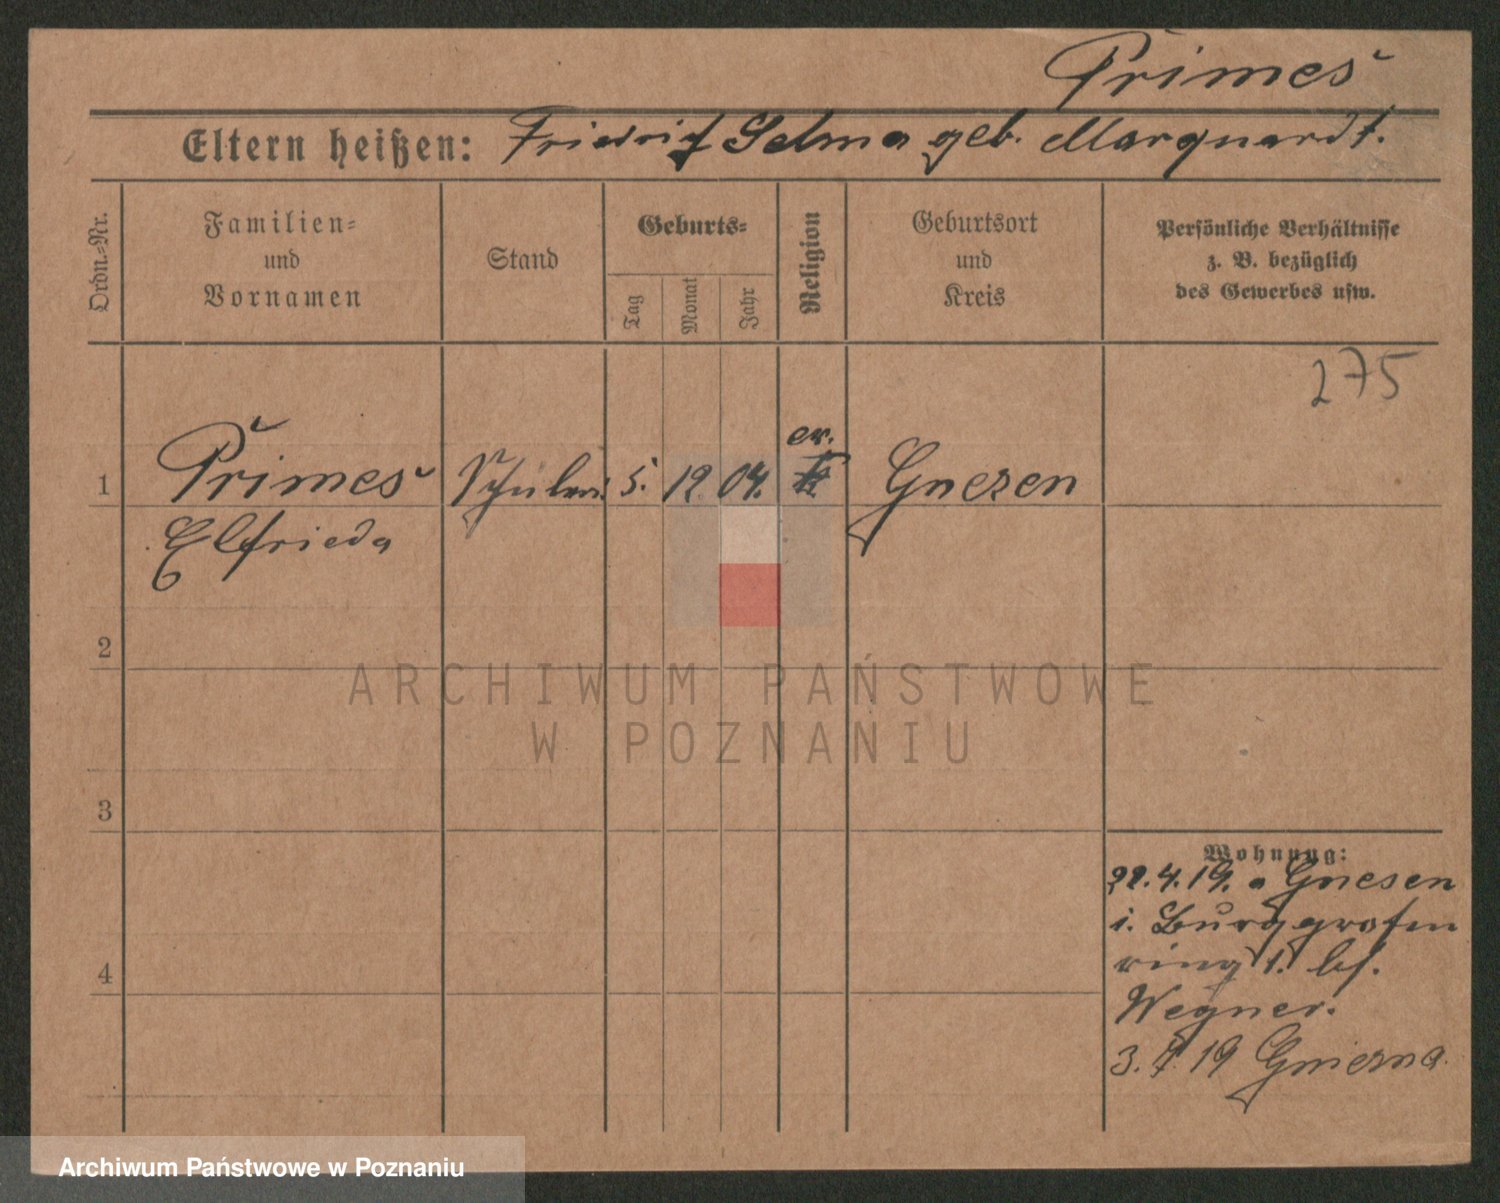 Primes
Eltern heißen: Friedrich Selma geb. Marquardt.
Ordn.-Nr.
Familien-
und
Vornamen
Stand
Geburts-
Tag
Monat
Jahr
Religion
Geburtsort
und
Kreis
Persönliche Verhältnisse
z. B. bezüglich
des Gewerbes usw.
275
1 Primes Schülerin 5. 12. 04. ev. Gnesen
Elfrieda
2
3
4
Wohnung:
22.4.19. a Gnesen
i. Burggrafen
ring 1. bf.
Wegner.
3. 7 19 Gniezna
ARCHIWUM PAŃSTWOWE
W POZNANIU
Archiwum Państwowe w Poznaniu